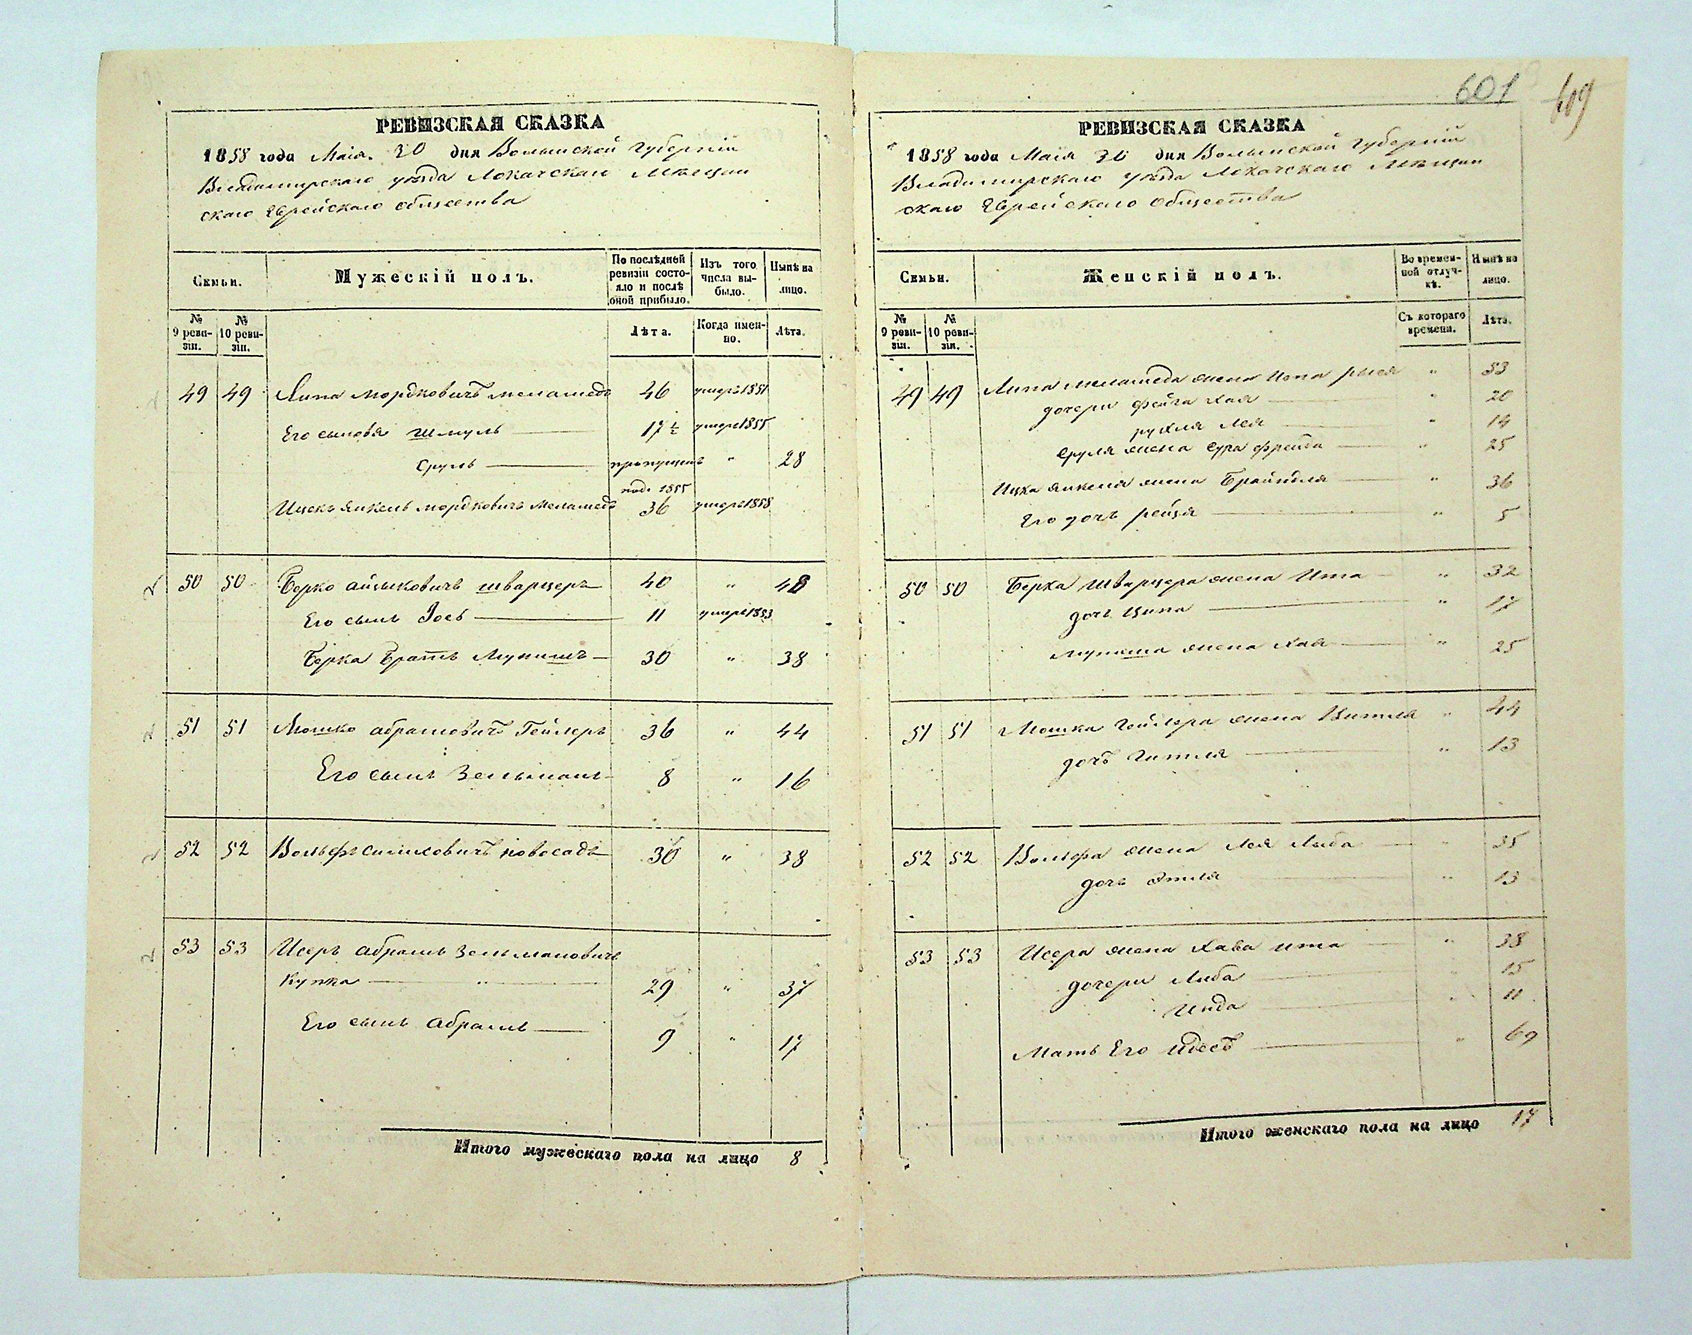 601
609
РЕВИЗСКАЯ СКАЗКА
1858 года Маія 30 дня Волынской Губерніи
Владимирскаго уѣзда Локачскаго Мѣщан
скаго Еврейскаго общества
Семьи.
Мужескій полъ.
По послѣдней ревизіи состояло и послѣ оной прибыло.
Изъ того числа выбыло.
Нынѣ на лицо.
№ 9 ревизіи.
№ 10 ревизіи.
Лѣта.
Когда именно.
Лѣта.
49 49 Липа Мордковичъ Меламедъ 46 умеръ 1851
Его сыновья Шмуль 17½ умеръ 1855
Сруль пропущенъ " 28
1855
Ицекъ Янкель Мордковичъ Меламедъ 36 умеръ 1858
50 50 Берко Айзыковичъ Шварцеръ 40 " 48
Его сынъ Іось 11 умеръ 1853
Берка Братъ Мунишъ 30 " 38
51 51 Мошко Абрамовичъ Гейлеръ 36 " 44
Его сынъ Зельманъ 8 " 16
52 52 Вольфъ новосадъ 30 " 38
53 53 Исеръ Абрамъ Зельмановичъ
Купка " 29 " 37
Его сынъ Абрамъ 9 " 17
Итого мужескаго пола на лицо 8
РЕВИЗСКАЯ СКАЗКА
1858 года Маія 30 дня Волынской Губерніи
Владимирскаго уѣзда Локачскаго Мѣщан
скаго Еврейскаго общества
Семьи.
Женскій полъ.
Во временной отлучкѣ.
Нынѣ на лицо.
№ 9 ревизіи.
№ 10 ревизіи.
Съ котораго времени.
Лѣта.
49 49 Липа Меламеда жена Рыся " 53
дочери Фейга Хая " 20
Рухля Лея " 14
Сруля жена Сура Фрейда " 25
Ицка Янкеля жена Брайндля " 36
Его дочь Рейзя " 5
50 50 Берка Шварцера жена Ита " 32
дочь Ципа " 17
Муниша жена Хая " 25
51 51 Мошка Гейлера жена " 44
дочь Гитля " 13
52 52 Вольфа жена Лея Либа " 35
дочь Этля " 13
53 53 Исера жена Хава Ита " 38
дочери Либа " 15
Инда " 11
Мать Его Идесъ " 69
Итого женскаго пола на лицо 17